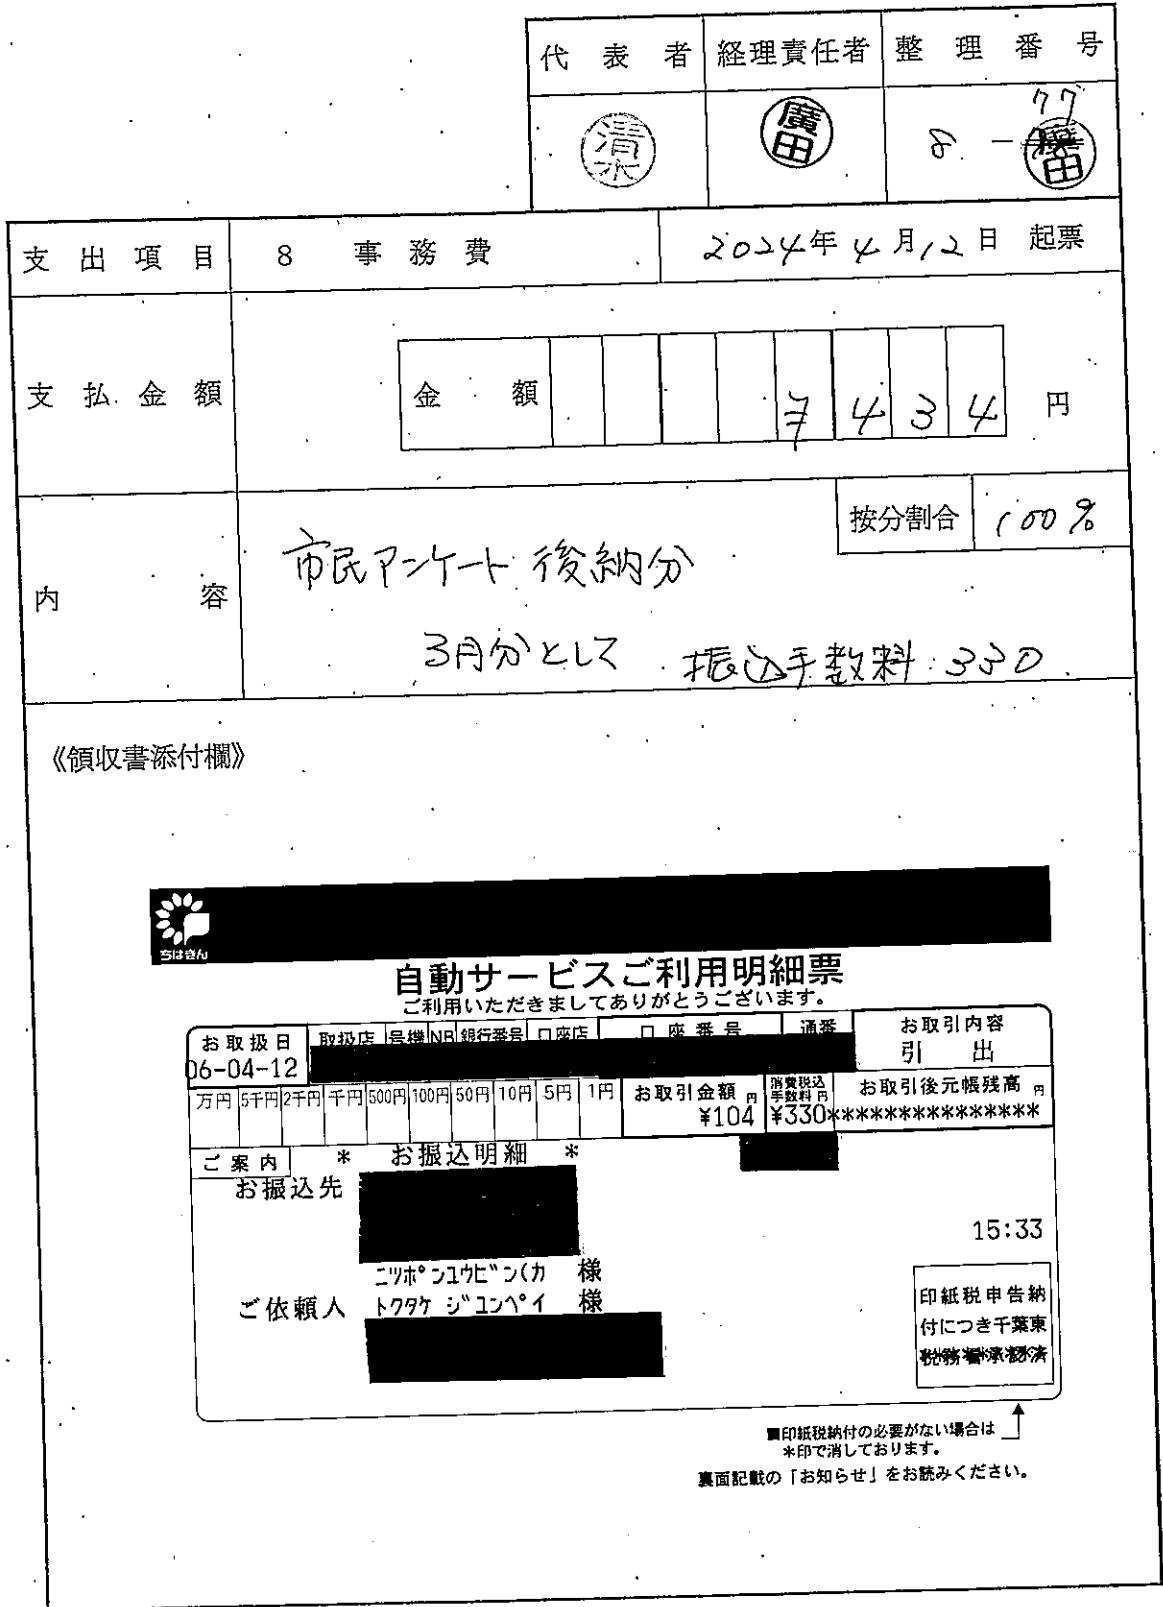 代表者 経理責任者 整理番号
清水 廣田 8-77 廣田
支出項目 8 事務費 2024年4月12日 起票
支払金額 金額 7434 円
按分割合 100%
内容 市民アンケート 後納分
3月分として 振込手数料:330
《領収書添付欄》
ちばぎん
自動サービスご利用明細票
ご利用いただきましてありがとうございます。
お取扱日 取扱店 号機 NB 銀行番号 口座店 口座番号 通番 お取引内容
06-04-12 引出
万円 5千円 2千円 千円 500円 100円 50円 10円 5円 1円 お取引金額 円 消費税込手数料 円 お取引後元帳残高 円
¥104 ¥330***************
ご案内 * お振込明細 *
お振込先
15:33
ニツポンユウビン(カ 様
ご依頼人 トクタケ ジユンペイ 様
印紙税申告納
付につき千葉東
税務署承認済
■印紙税納付の必要がない場合は
*印で消しております。
裏面記載の「お知らせ」をお読みください。